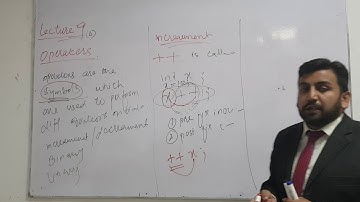 Lecture 9(a)
Operators
operators are the
symbols which
are used to perform
diff
increment / decrement
Binary
Unary
increament
++ is call
int x ;
x ++ ;
① pre fix incr
② post fix
++ x ;